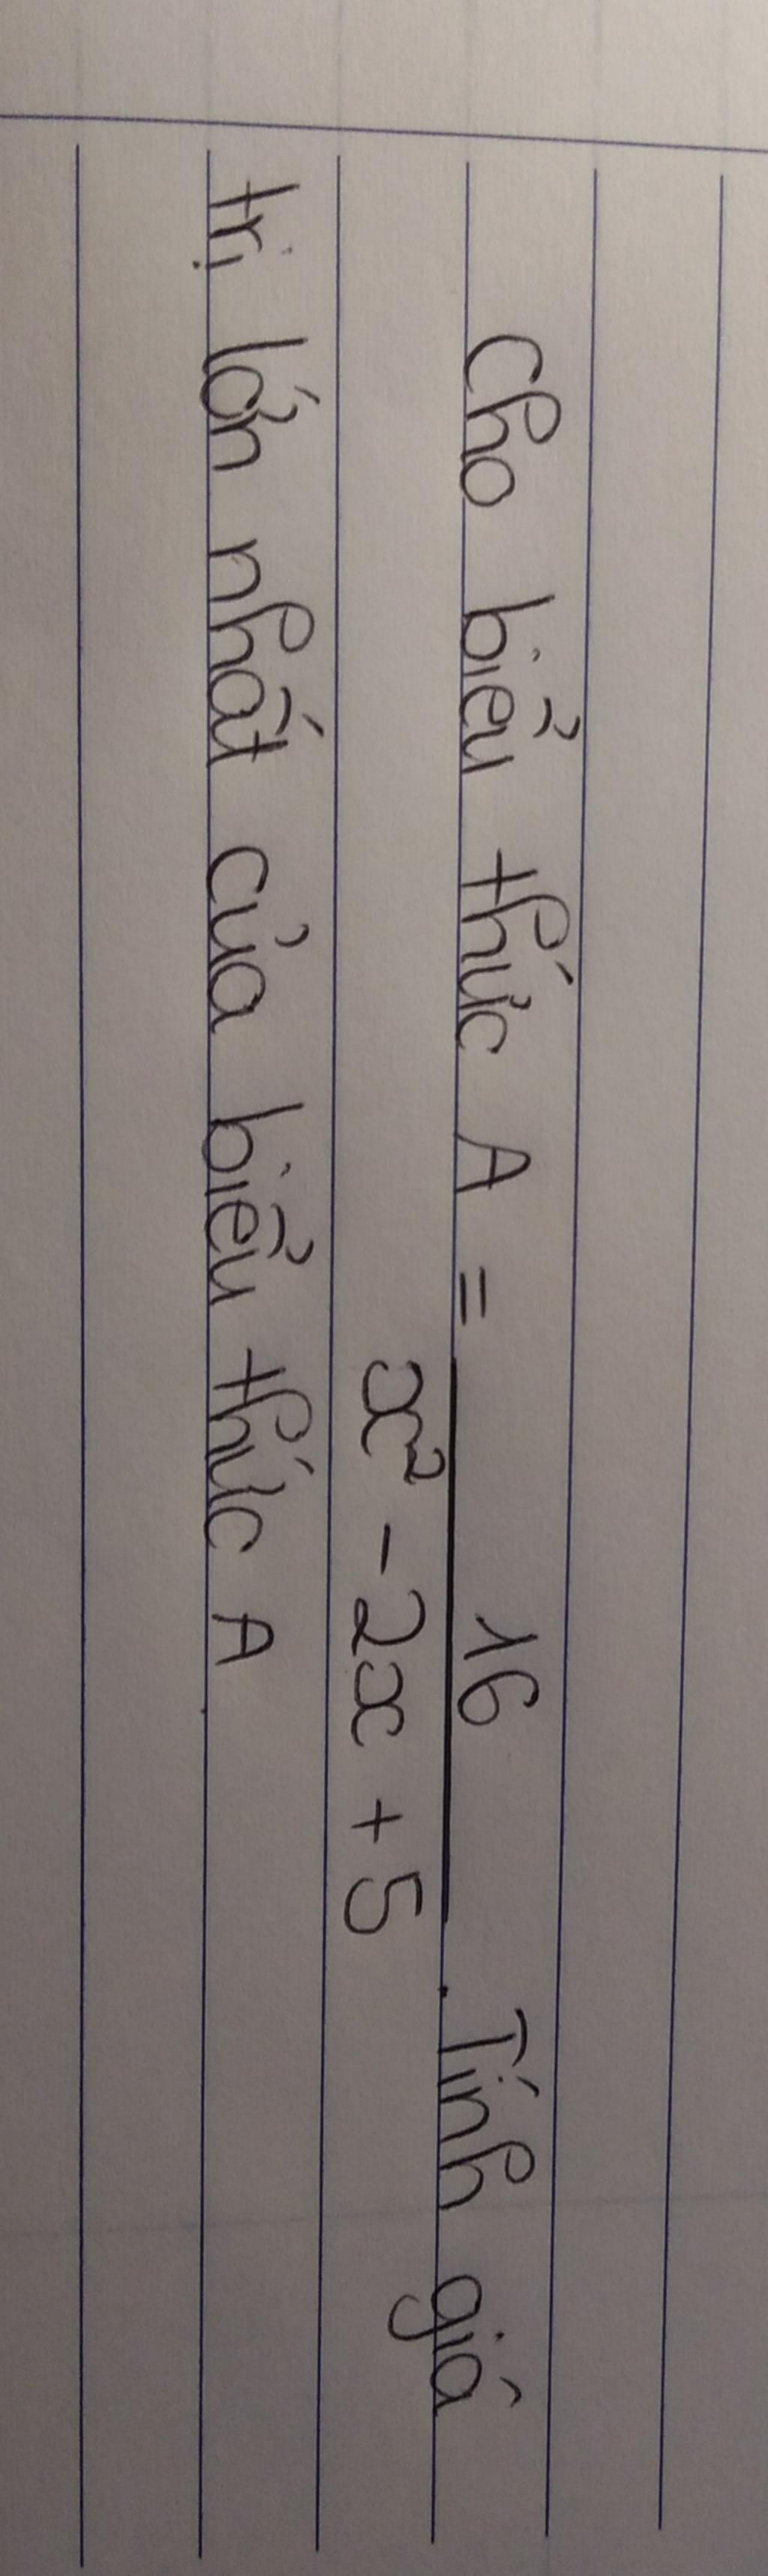 Cho biểu thức A = 16 / x² - 2x + 5 . Tính giá
trị lớn nhất của biểu thức A